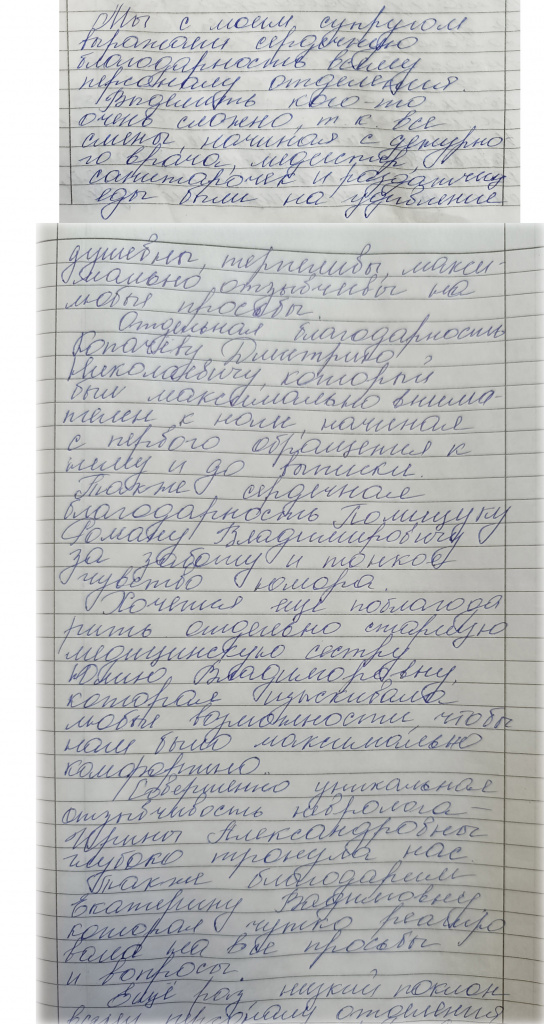 Мы с моим супругом
выражаем сердечную
благодарность всему
персоналу отделения.
Выделить кого-то
очень сложно, т.к. все
смены, начиная с дежурно-
го врача, медсестёр,
санитарочек и раздатчиц
еды были на удивление
душевны, терпеливы, макси-
мально отзывчивы на
любые просьбы.
Отдельная благодарность
Копачеву Дмитрию
Николаевичу, который
был максимально внима-
телен к нам, начиная
с первого обращения к
нему и до выписки.
Также сердечная
благодарность Полищуку
Роману Владимировичу
за заботу и тонкое
чувство юмора.
Хочется ещё поблагода
рить отдельно старшую
медицинскую сестру
Юлию Владимировну,
которая изыскивала
любые возможности, чтобы
нам было максимально
комфортно.
Совершенно уникальная
отзывчивость невролога -
Ирины Александровны
глубоко тронула нас.
Также благодарим
Екатерину Вадимовну
которая чутко реагиро
вала на все просьбы
и вопросы.
Ещё раз, низкий поклон
всему персоналу отделения